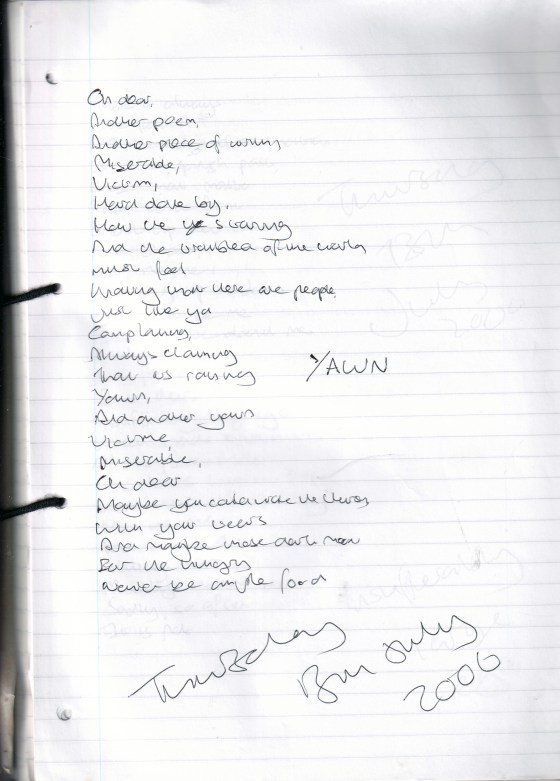 Oh dear,
Another poem,
Another piece of
Miserable,
Victim,
Hard done by.
How the starving
And the troubled of the world
must feel
Knowing that there are people
Just like ya
Complaining,
Always claiming
That its raining
YAWN
Yawn,
And another yawn
Victim,
Miserable,
Oh dear
Maybe you could the
With your tears
And maybe those
For the hungry
would be ample food
Thursday
13th July
2006